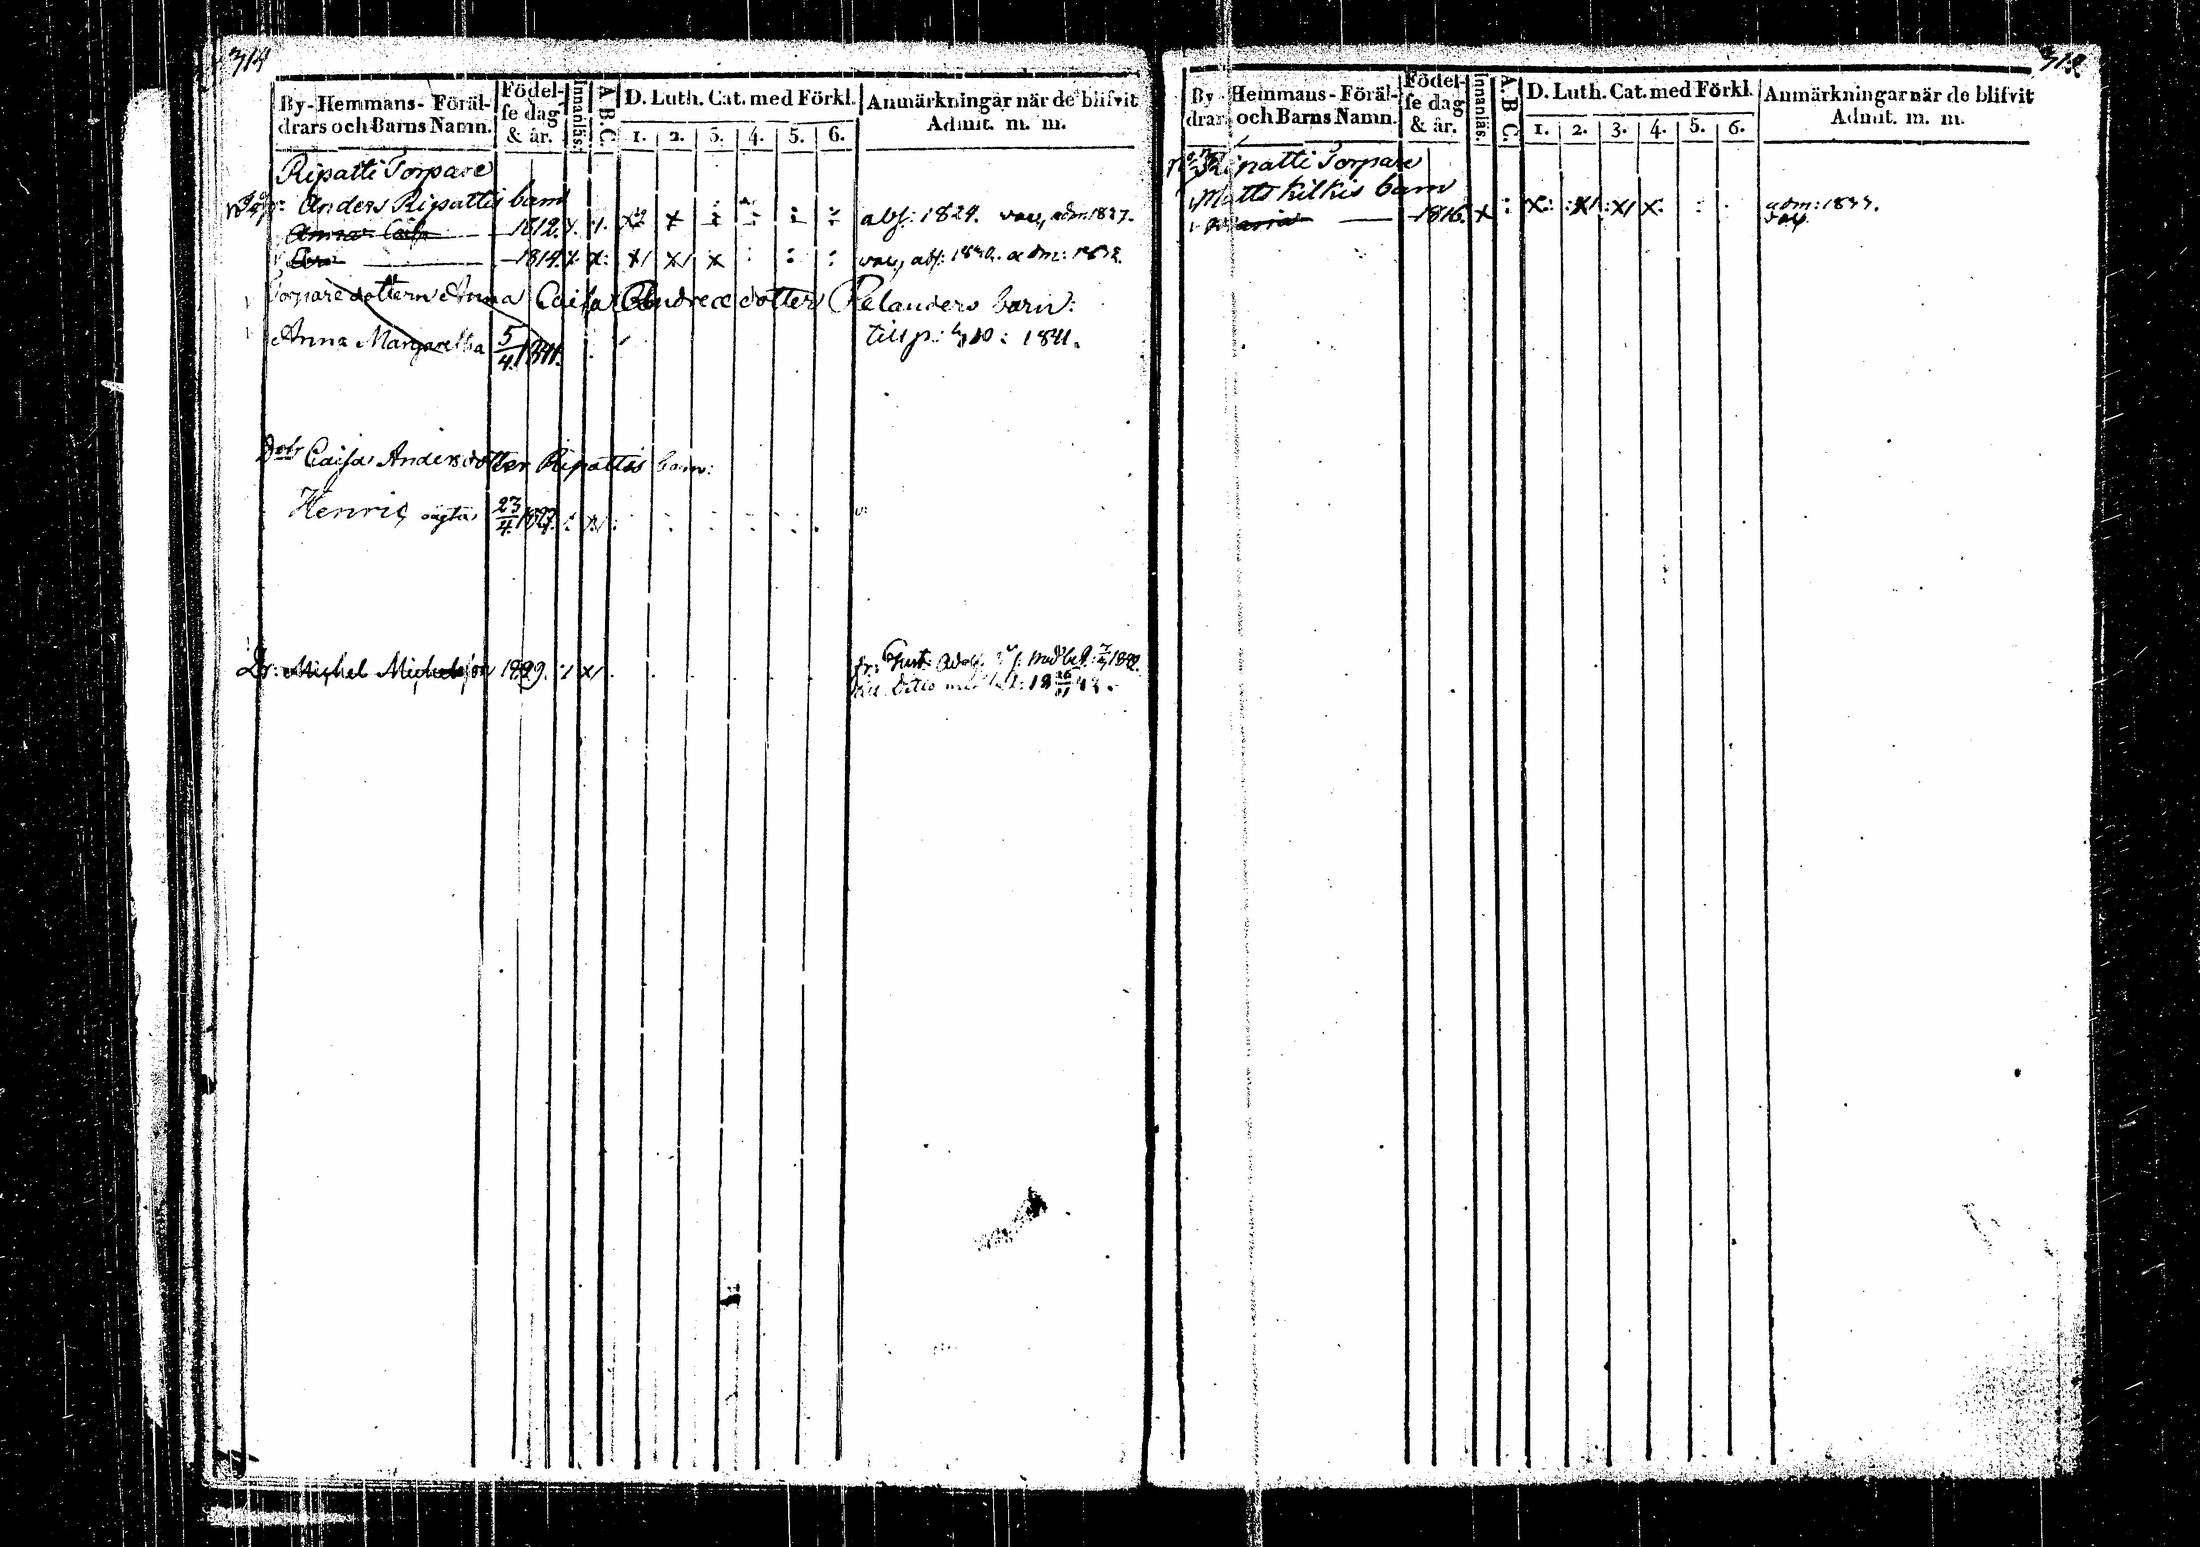 314
By-Hemmans- Föräl-
drars och Barns Namn.
Födel-
se dag
& år.
Innanläs.
A. B. C.
D. Luth. Cat. med Förkl.
1. 2. 3. 4. 5. 6.
Anmärkningar när de blifvit
Admit. m. m.
Ripatti Torpare
Anders Ripattis barn
Anna Caisa 1812. x x abs: 1829. vac, adm: 1837.
1814. x x x vac, abs: 1832. adm: 1832.
Torparedottern Anna Caisa Andreæ dotter Pelanders barn:
Anna Margaretha 5/4 1841. 1841.
Caisa Andersdotter Ripattis barn:
Henric oägta 23/4
Dr: Michel Michelsson 1829. x
fr: Gust: Adolfs
Ditto med
By-Hemmans- Föräl-
drars och Barns Namn.
Födel-
se dag
& år.
Innanläs.
A. B. C.
D. Luth. Cat. med Förkl.
1. 2. 3. 4. 5. 6.
Anmärkningar när de blifvit
Admit. m. m.
Ripatti Torpare
Matts Kilkis barn
Maria 1816. x x x x x adm: 1837.
vac